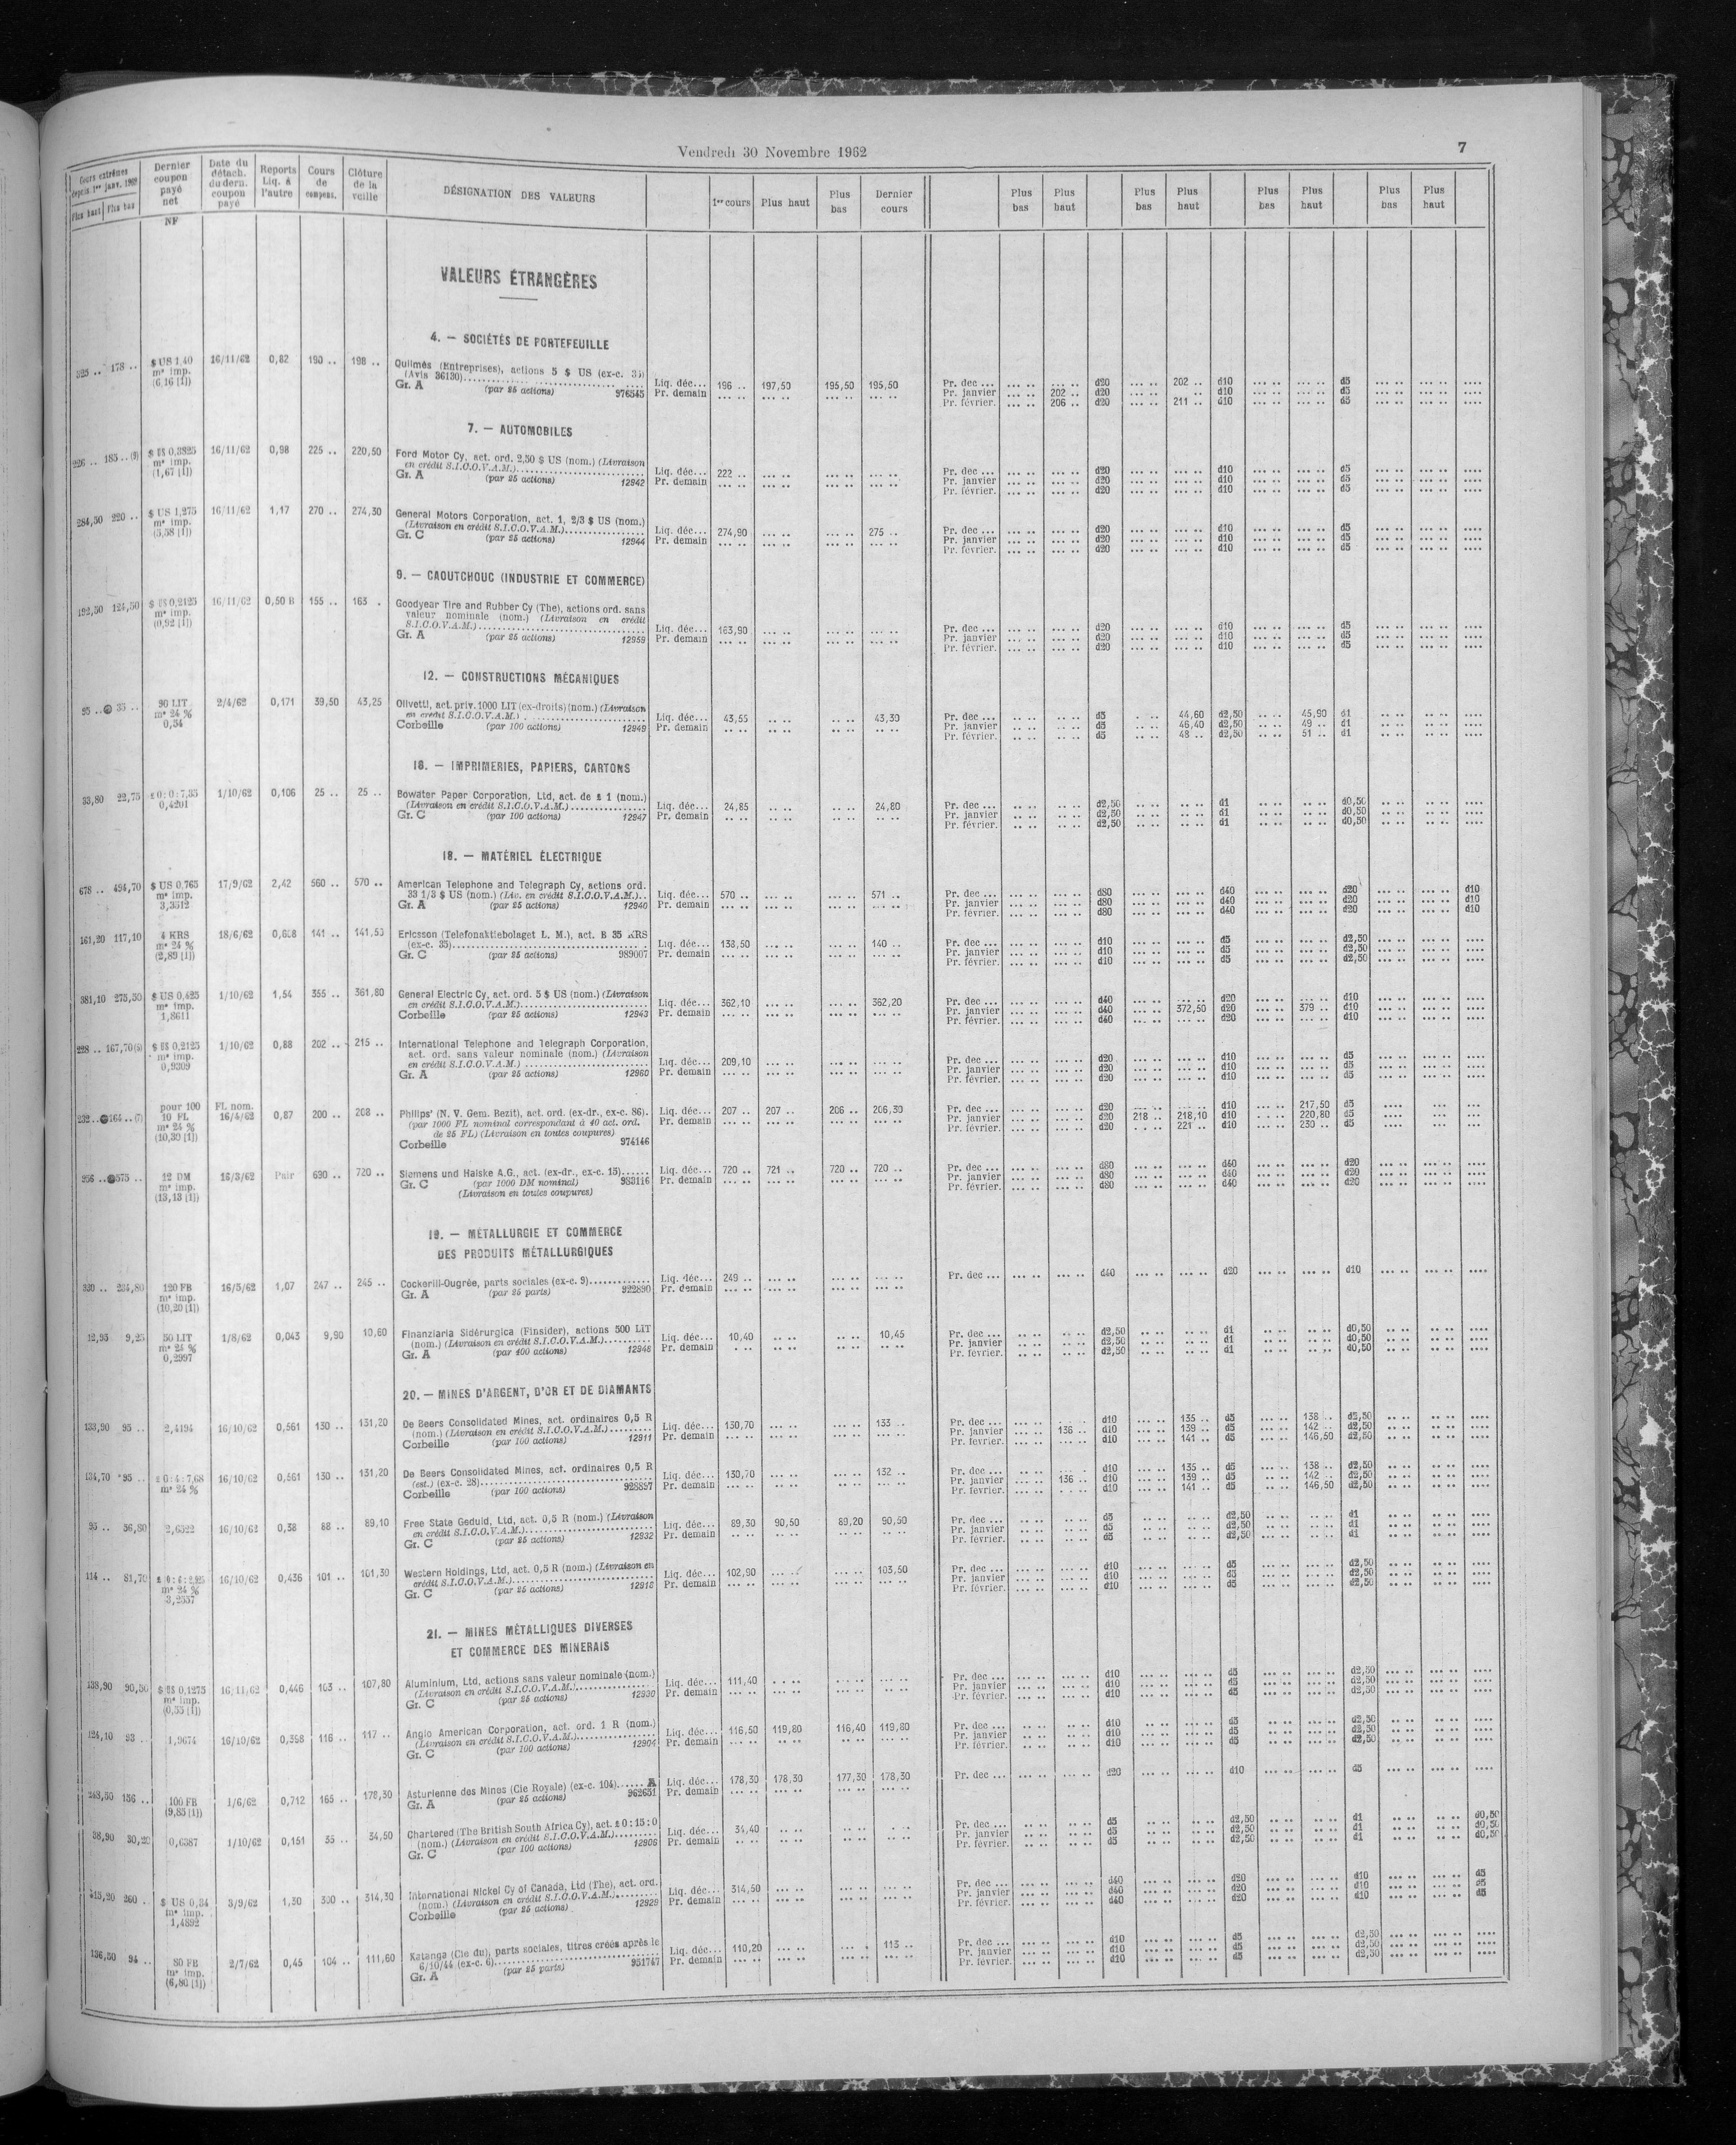 Vendredi 30 Novembre 1962
7
Cours extrêmes depuis 1er janv. 1962 Plus haut Plus bas | Dernier coupon payé net NF | Date du détach. du dern. coupon payé | Reports Liq. à l'autre | Cours de compens. | Clôture de la veille | DÉSIGNATION DES VALEURS | 1er cours | Plus haut | Plus bas | Dernier cours | Plus bas | Plus haut | Plus bas | Plus haut | Plus bas | Plus haut | Plus bas | Plus haut
VALEURS ÉTRANGÈRES
4. — SOCIÉTÉS DE PORTEFEUILLE
325 .. 178 .. $ US 1,40 16/11/62 0,82 190 .. 198 .. Oulmès (Entreprises), actions 5 $ US (ex-c. 33)
m° imp. (Avis 36130)
(6,16 [1]) Gr. A (par 25 actions) 976545 Liq. déc... 196 .. 197,50 195,50 195,50 Pr. dec ... d20 202 .. d10 d5
Pr. demain Pr. janvier 202 .. d20 d10 d5
Pr. février. 206 .. d20 211 .. d10 d5
7. — AUTOMOBILES
226 .. 185 .. (9) $ US 0,3825 16/11/62 0,98 225 .. 220,50 Ford Motor Cy, act. ord. 2,50 $ US (nom.) (Livraison
m° imp. en crédit S.I.C.O.V.A.M.)
(1,67 [1]) Gr. A (par 25 actions) 12942 Liq. déc... 222 .. Pr. dec ... d20 d10 d5
Pr. demain Pr. janvier d20 d10 d5
Pr. février. d20 d10 d5
284,50 220 .. $ US 1,275 16/11/62 1,17 270 .. 274,30 General Motors Corporation, act. 1, 2/3 $ US (nom.)
m° imp. (Livraison en crédit S.I.C.O.V.A.M.)
(5,58 [1]) Gr. C (par 25 actions) 12944 Liq. déc... 274,90 275 .. Pr. dec ... d20 d10 d5
Pr. demain Pr. janvier d20 d10 d5
Pr. février. d20 d10 d5
9. — CAOUTCHOUC (INDUSTRIE ET COMMERCE)
192,50 124,50 $ US 0,2125 16/11/62 0,50 B 155 .. 163 . Goodyear Tire and Rubber Cy (The), actions ord. sans
m° imp. valeur nominale (nom.) (Livraison en crédit
(0,92 [1]) S.I.C.O.V.A.M.)
Gr. A (par 25 actions) 12959 Liq. déc... 163,90 Pr. dec ... d20 d10 d5
Pr. demain Pr. janvier d20 d10 d5
Pr. février. d20 d10 d5
12. — CONSTRUCTIONS MÉCANIQUES
95 .. 35 .. 90 LIT 2/4/62 0,171 39,50 43,25 Olivetti, act. priv. 1000 LIT (ex-droits) (nom.) (Livraison
m° 24 % en crédit S.I.C.O.V.A.M.)
0,54 Corbeille (par 100 actions) 12949 Liq. déc... 43,55 43,30 Pr. dec ... d5 44,60 d2,50 45,90 d1
Pr. demain Pr. janvier d5 46,40 d2,50 49 .. d1
Pr. février. d5 48 .. d2,50 51 .. d1
16. — IMPRIMERIES, PAPIERS, CARTONS
33,80 22,75 £ 0:0:7,35 1/10/62 0,106 25 .. 25 .. Bowater Paper Corporation, Ltd, act. de £ 1 (nom.)
0,4201 (Livraison en crédit S.I.C.O.V.A.M.)
Gr. C (par 100 actions) 12947 Liq. déc... 24,85 24,80 Pr. dec ... d2,50 d1 d0,50
Pr. demain Pr. janvier d2,50 d1 d0,50
Pr. février. d2,50 d1 d0,50
18. — MATÉRIEL ÉLECTRIQUE
678 .. 494,70 $ US 0,765 17/9/62 2,42 560 .. 570 .. American Telephone and Telegraph Cy, actions ord.
m° imp. 33 1/3 $ US (nom.) (Liv. en crédit S.I.C.O.V.A.M.)..
3,3512 Gr. A (par 25 actions) 12940 Liq. déc... 570 .. 571 .. Pr. dec ... d80 d40 d20 d10
Pr. demain Pr. janvier d80 d40 d20 d10
Pr. février. d80 d40 d20 d10
161,20 117,10 4 KRS 18/6/62 141 .. Ericsson (Telefonaktiebolaget L. M.), act. B 35 KRS
m° 24 % (ex-c. 35)
(2,89 [1]) Gr. C (par 25 actions) 989007 Liq. déc... 138,50 140 .. Pr. dec ... d10 d5 d2,50
Pr. demain Pr. janvier d10 d5 d2,50
Pr. février. d10 d5 d2,50
381,10 275,50 $ US 0,425 1/10/62 1,54 355 .. 361,80 General Electric Cy, act. ord. 5 $ US (nom.) (Livraison
m° imp. en crédit S.I.C.O.V.A.M.)
1,8611 Corbeille (par 25 actions) 12943 Liq. déc... 362,10 362,20 Pr. dec ... d40 d20 d10
Pr. demain Pr. janvier d40 372,50 d20 379 .. d10
Pr. février. d40 d20 d10
228 .. 167,70 (5) $ US 0,2125 1/10/62 0,88 202 .. 215 .. International Telephone and Telegraph Corporation,
m° imp. act. ord. sans valeur nominale (nom.) (Livraison
0,9309 en crédit S.I.C.O.V.A.M.)
Gr. A (par 25 actions) 12960 Liq. déc... 209,10 Pr. dec ... d20 d10 d5
Pr. demain Pr. janvier d20 d10 d5
Pr. février. d20 d10 d5
232 .. 164 .. (7) pour 100 FL nom.
10 FL 16/4/62 0,87 200 .. 208 .. Philips' (N. V. Gem. Bezit), act. ord. (ex-dr., ex-c. 86).
m° 24 % (par 1000 FL nominal correspondant à 40 act. ord.
(10,30 [1]) de 25 FL) (Livraison en toutes coupures)
Corbeille 974146 Liq. déc... 207 .. 207 .. 206 .. 206,30 Pr. dec ... d20 d10 217,50 d5
Pr. demain Pr. janvier d20 218 .. 218,10 d10 220,80 d5
Pr. février. d20 221 .. d10 230 .. d5
956 .. 575 .. 12 DM 16/3/62 Pair 690 .. 720 .. Siemens und Halske A.G., act. (ex-dr., ex-c. 15)
m° imp. Gr. C (par 1000 DM nominal) 983116
(13,13 [1]) (Livraison en toutes coupures)
Liq. déc... 720 .. 721 .. 720 .. 720 .. Pr. dec ... d80 d40 d20
Pr. demain Pr. janvier d80 d40 d20
Pr. février. d80 d40 d20
19. — MÉTALLURGIE ET COMMERCE
DES PRODUITS MÉTALLURGIQUES
330 .. 234,80 120 FB 16/5/62 1,07 247 .. 245 .. Cockerill-Ougrée, parts sociales (ex-c. 9)
m° imp. Gr. A (par 25 parts) 922890
(10,20 [1]) Liq. déc... 249 .. Pr. dec ... d40 d20 d10
Pr. demain
12,95 9,25 50 LIT 1/8/62 0,043 9,90 10,60 Finanziaria Sidérurgica (Finsider), actions 500 LIT
m° 24 % (nom.) (Livraison en crédit S.I.C.O.V.A.M.)
0,2997 Gr. A (par 100 actions) 12948 Liq. déc... 10,40 10,45 Pr. dec ... d2,50 d1 d0,50
Pr. demain Pr. janvier d2,50 d1 d0,50
Pr. février. d2,50 d1 d0,50
20. — MINES D'ARGENT, D'OR ET DE DIAMANTS
133,90 95 .. 2,4194 16/10/62 0,561 130 .. 131,20 De Beers Consolidated Mines, act. ordinaires 0,5 R
(nom.) (Livraison en crédit S.I.C.O.V.A.M.)
Corbeille (par 100 actions) 12911 Liq. déc... 130,70 133 .. Pr. dec ... d10 135 .. d5 138 .. d2,50
Pr. demain Pr. janvier 136 .. d10 139 .. d5 142 .. d2,50
Pr. février. d10 141 .. d5 146,50 d2,50
134,70 *95 .. £ 0:4:7,68 16/10/62 0,561 130 .. 131,20 De Beers Consolidated Mines, act. ordinaires 0,5 R
m° 24 % (est.) (ex-c. 28)
Corbeille (par 100 actions) 928897 Liq. déc... 130,70 132 .. Pr. dec ... d10 135 .. d5 138 .. d2,50
Pr. demain Pr. janvier 136 .. d10 139 .. d5 142 .. d2,50
Pr. février. d10 141 .. d5 146,50 d2,50
95 .. 56,80 2,6522 16/10/62 0,38 88 .. 89,10 Free State Geduld, Ltd, act. 0,5 R (nom.) (Livraison
en crédit S.I.C.O.V.A.M.)
Gr. C (par 25 actions) 12932 Liq. déc... 89,30 90,50 89,20 90,50 Pr. dec ... d5 d2,50 d1
Pr. demain Pr. janvier d5 d2,50 d1
Pr. février. d5 d2,50 d1
114 .. 81,70 16/10/62 0,436 101 .. 101,30 Western Holdings, Ltd, act. 0,5 R (nom.) (Livraison en
m° 24 % crédit S.I.C.O.V.A.M.)
3,2557 Gr. C (par 25 actions) 12918 Liq. déc... 102,90 103,50 Pr. dec ... d10 d5 d2,50
Pr. demain Pr. janvier d10 d5 d2,50
Pr. février. d10 d5 d2,50
21. — MINES MÉTALLIQUES DIVERSES
ET COMMERCE DES MINERAIS
138,90 90,50 $ US 0,1275 16/11/62 0,446 103 .. 107,80 Aluminium, Ltd, actions sans valeur nominale (nom.)
m° imp. (Livraison en crédit S.I.C.O.V.A.M.)
(0,55 [1]) Gr. C (par 25 actions) 12930 Liq. déc... 111,40 Pr. dec ... d10 d5 d2,50
Pr. demain Pr. janvier d10 d5 d2,50
Pr. février. d10 d5 d2,50
124,10 93 .. 1,9674 16/10/62 0,398 116 .. 117 .. Anglo American Corporation, act. ord. 1 R (nom.)
(Livraison en crédit S.I.C.O.V.A.M.)
Gr. C (par 100 actions) 12904 Liq. déc... 116,50 119,80 116,40 119,80 Pr. dec ... d10 d5 d2,50
Pr. demain Pr. janvier d10 d5 d2,50
Pr. février. d10 d5 d2,50
248,50 156 .. 100 FB 1/6/62 0,712 165 .. 178,30 Asturienne des Mines (Cie Royale) (ex-c. 104)
(9,85 [1]) Gr. A (par 25 actions) 962651 Liq. déc... 178,30 178,30 177,30 178,30 Pr. dec ... d20 d10 d5
Pr. demain
38,90 30,20 0,6387 1/10/62 0,151 35 .. 34,50 Chartered (The British South Africa Cy), act. £ 0:15:0
(nom.) (Livraison en crédit S.I.C.O.V.A.M.)
Gr. C (par 100 actions) 12906 Liq. déc... 34,40 Pr. dec ... d5 d2,50 d1 d0,50
Pr. demain Pr. janvier d5 d2,50 d1 d0,50
Pr. février. d5 d2,50 d1 d0,50
415,20 260 .. $ US 0,34 3/9/62 1,30 300 .. 314,30 International Nickel Cy of Canada, Ltd (The), act. ord.
m° imp. (nom.) (Livraison en crédit S.I.C.O.V.A.M.)
1,4892 Corbeille (par 25 actions) 12929 Liq. déc... 314,50 Pr. dec ... d40 d20 d10 d5
Pr. demain Pr. janvier d40 d20 d10 d5
Pr. février. d40 d20 d10 d5
136,50 94 .. 80 FB 2/7/62 0,45 104 .. 111,60 Katanga (Cie du), parts sociales, titres créés après le
m° imp. 6/10/44 (ex-c. 6)
(6,80 [1]) Gr. A (par 25 parts) 951747 Liq. déc... 110,20 113 .. Pr. dec ... d10 d5 d2,50
Pr. demain Pr. janvier d10 d5 d2,50
Pr. février. d10 d5 d2,50